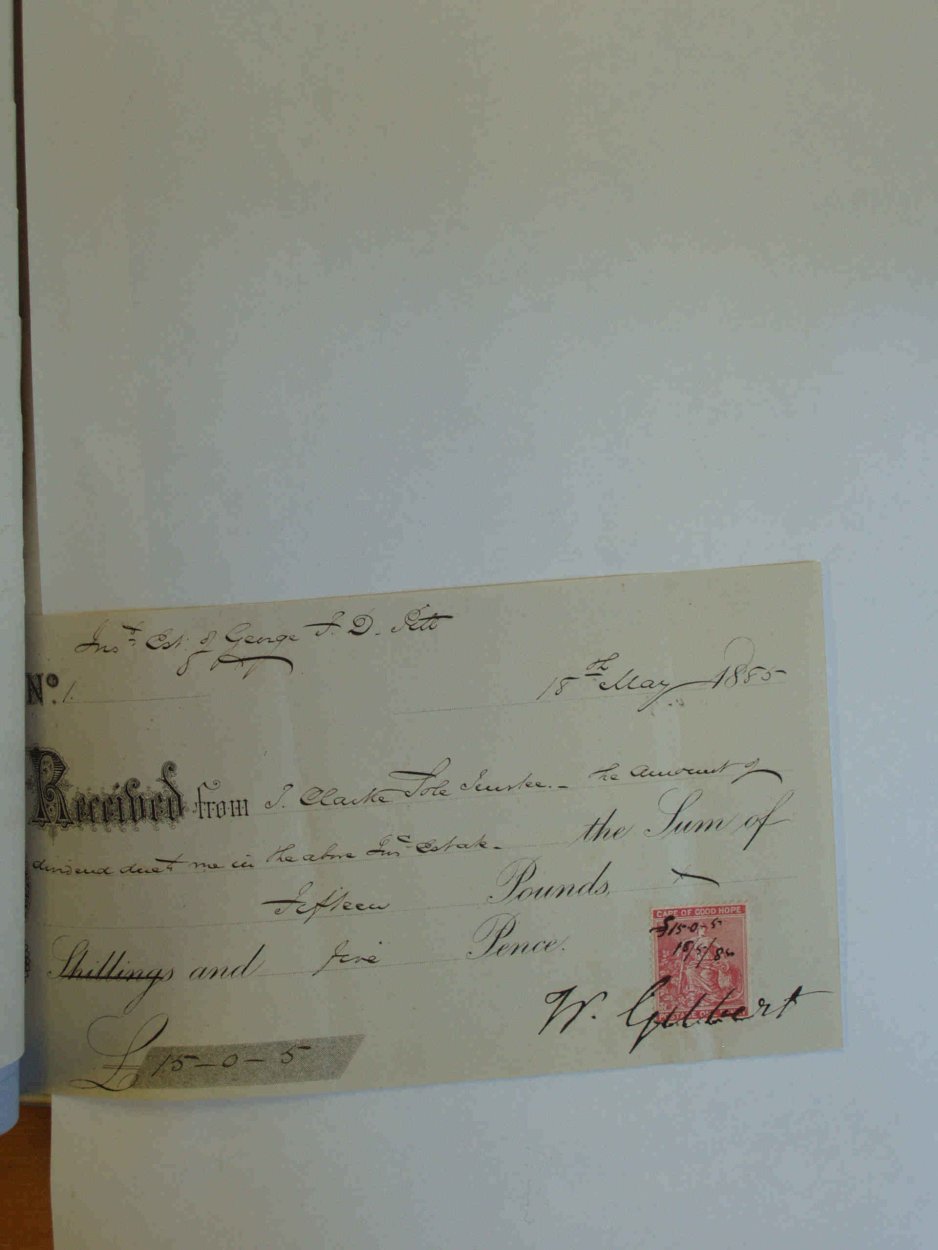 Inst Est. of George F. D. Pett
No. 1.
18th May 1885
Received from J. Clarke Sole Trustee. – the amount of
dividend due me in the above Inst Estate – the Sum of
Fifteen Pounds
Shillings and five Pence.
CAPE OF GOOD HOPE
£15-0-5
18/5/85
POSTAGE ONE
W. Gilbert
£ 15-0-5